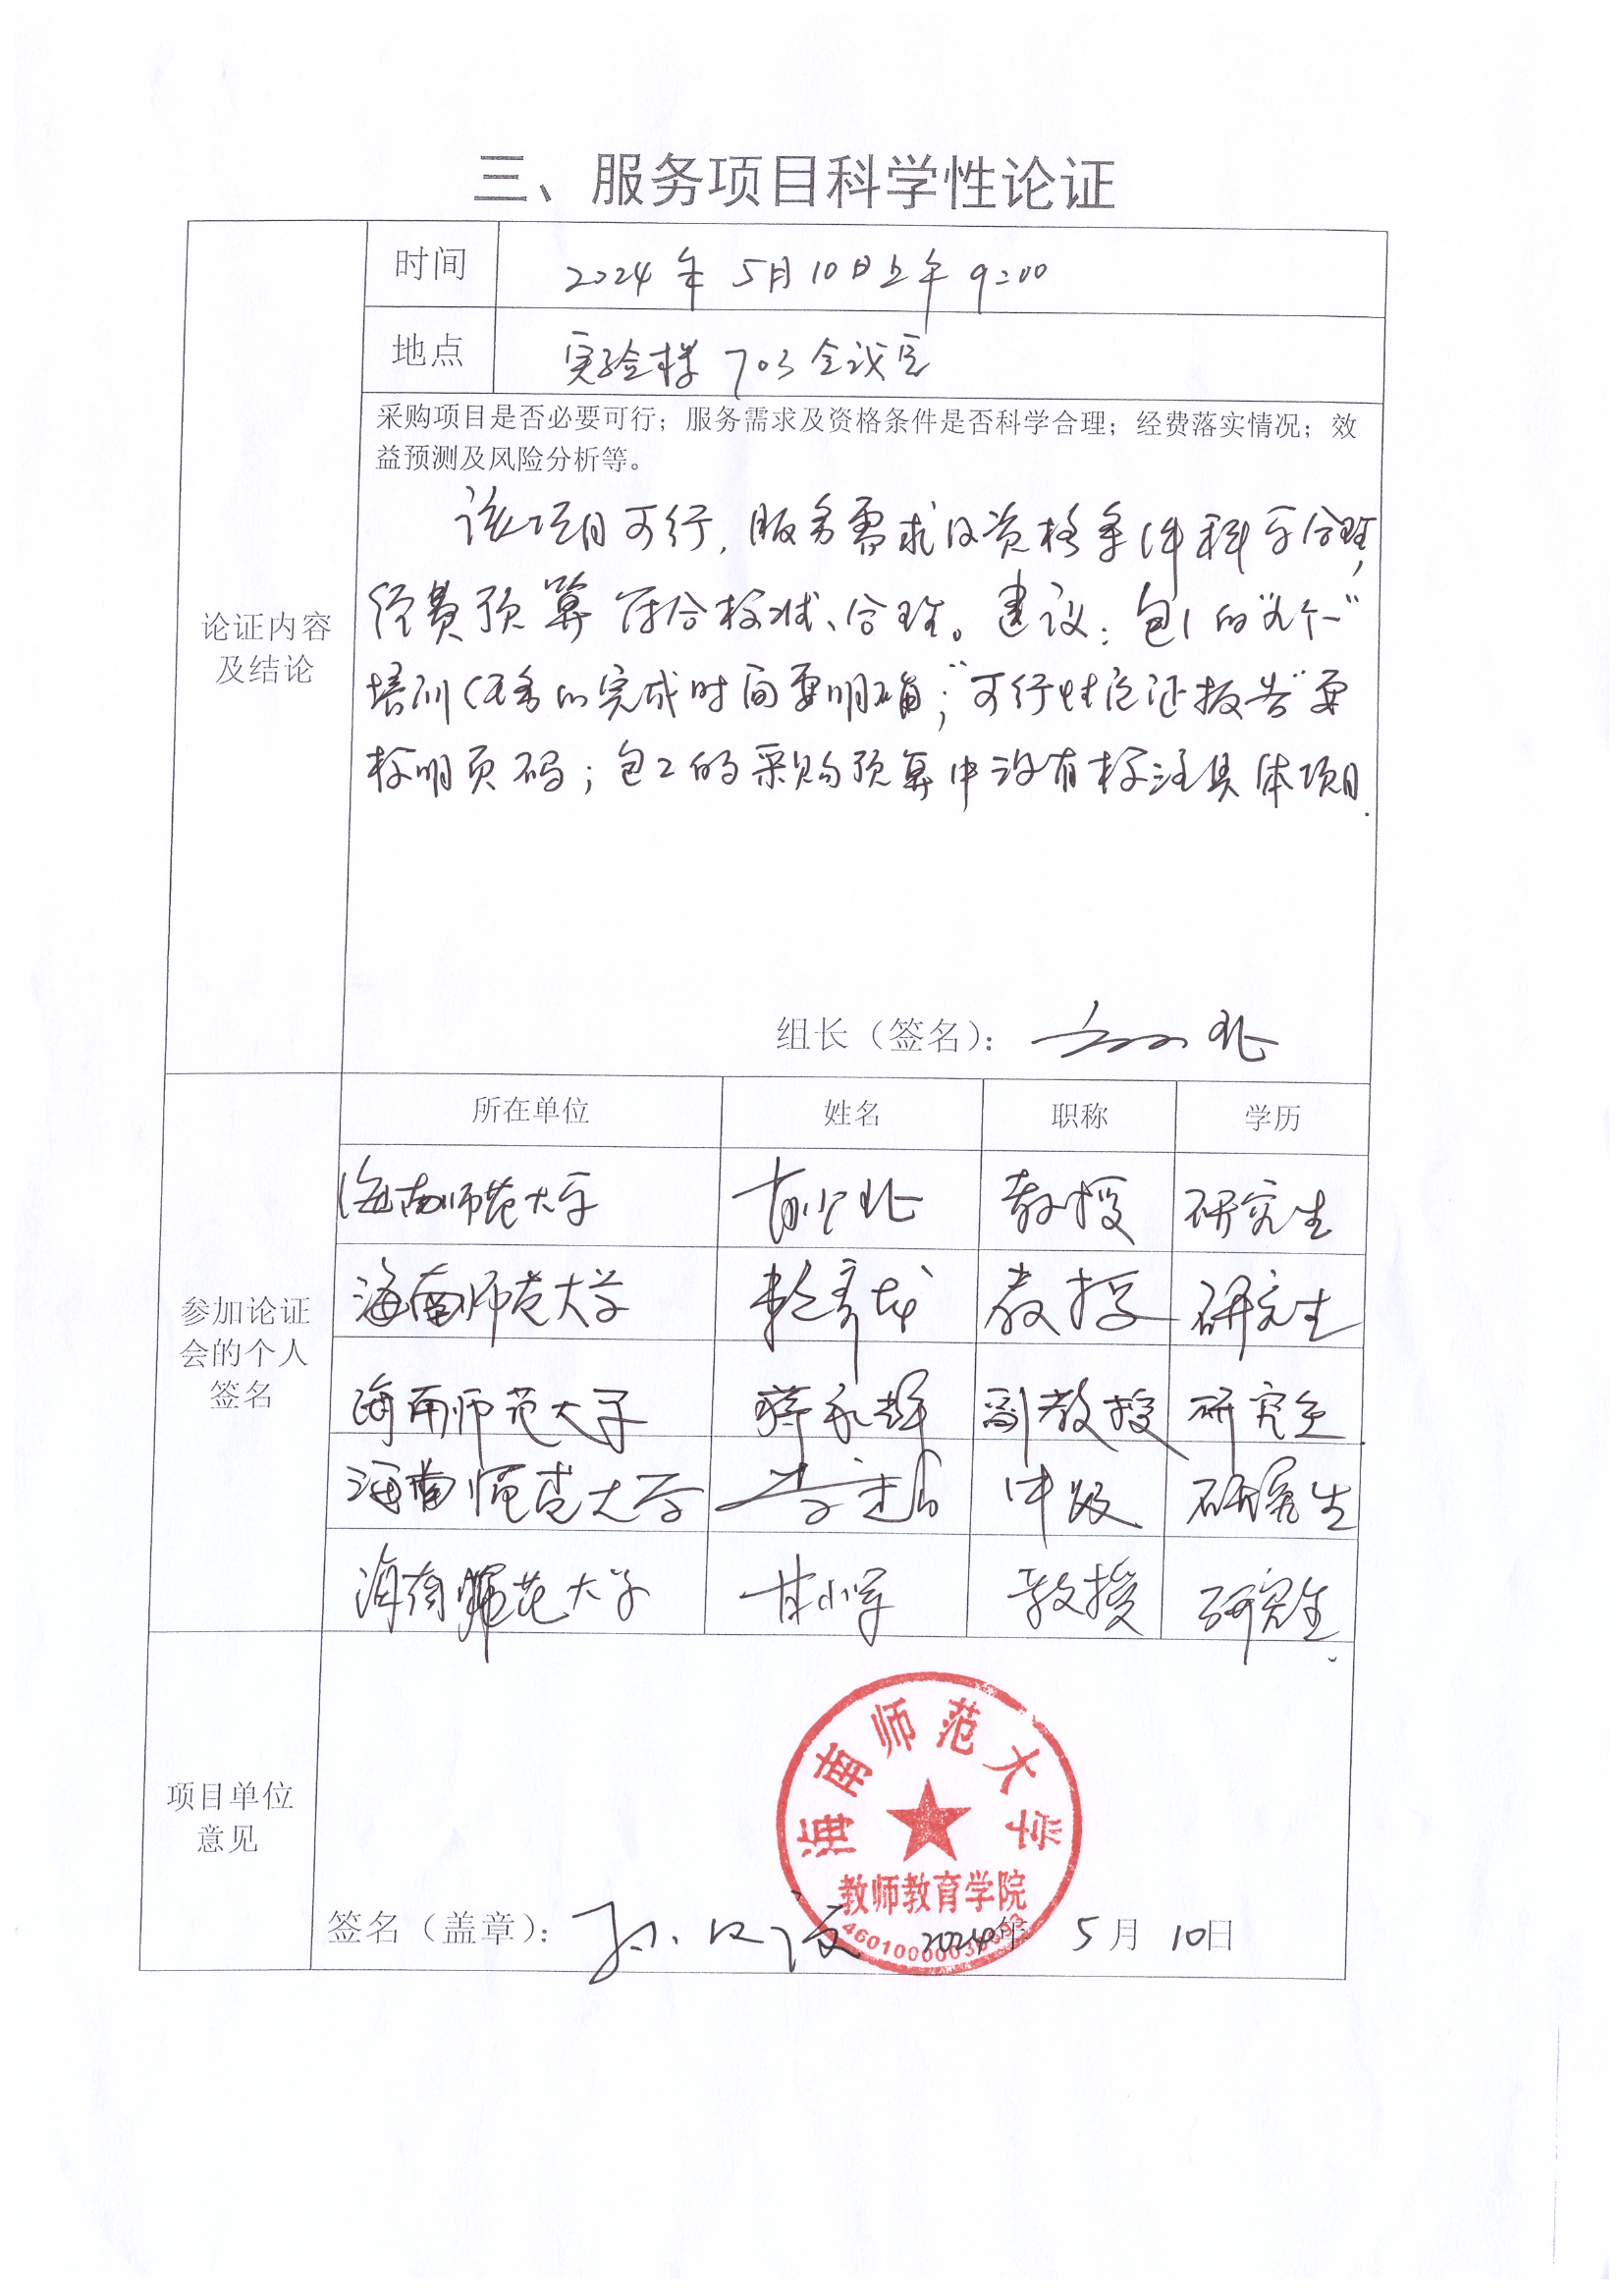 三、服务项目科学性论证
时间 2024年5月10日上午9:00
地点 实验楼703会议室
采购项目是否必要可行；服务需求及资格条件是否科学合理；经费落实情况；效
益预测及风险分析等。
该项目可行，服务需求及资格条件科学合理，
经费预算符合标准、合理。建议：包1的"九个一"
论证内容
及结论
培训任务的完成时间要明确；"可行性论证报告"要
标明页码；包2的采购预算中没有标注具体项目.
组长（签名）：
所在单位 姓名 职称 学历
海南师范大学 教授 研究生
海南师范大学 教授 研究生
参加论证
会的个人
签名
海南师范大学 蒋永辉 副教授 研究生
海南师范大学 中级 研究生
海南师范大学 甘小军 教授 研究生
项目单位
意见
海南师范大学
教师教育学院
签名（盖章）： 2024年 5月 10日